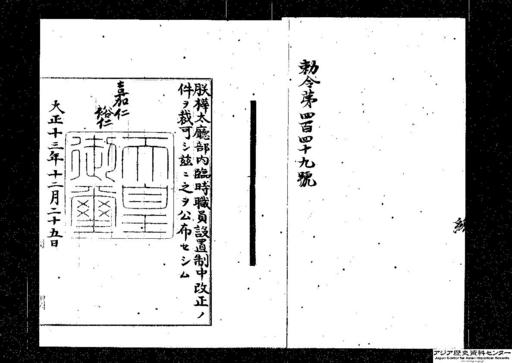 勅令第四百四十九號
朕樺太廳部內臨時職員設置制中改正ノ
件ヲ裁可シ茲ニ之ヲ公布セシム
嘉仁
裕仁
天皇
御璽
大正十三年十二月二十五日
アジア歴史資料センター
Japan Center for Asian Historical Records